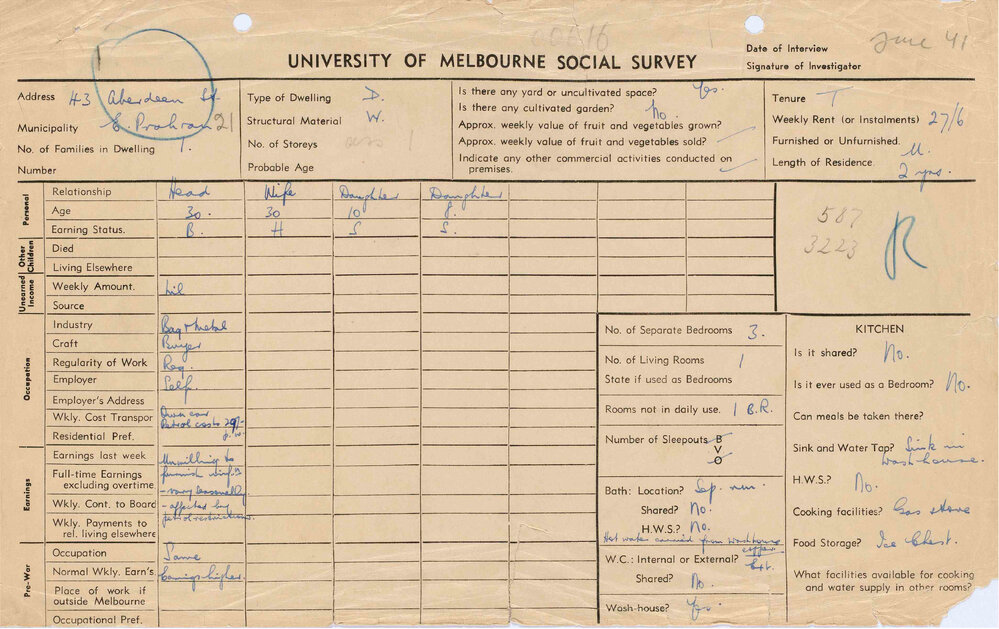 June 41
Date of Interview
UNIVERSITY OF MELBOURNE SOCIAL SURVEY
Signature of Investigator
Address 43 Aberdeen St
Municipality E. Prahran 21
No. of Families in Dwelling 1.
Number
Type of Dwelling D.
Structural Material W.
No. of Storeys 1
Probable Age
Is there any yard or uncultivated space? Yes.
Is there any cultivated garden? No.
Approx. weekly value of fruit and vegetables grown?
Approx. weekly value of fruit and vegetables sold?
Indicate any other commercial activities conducted on
premises.
Tenure T
Weekly Rent (or Instalments) 27/6
Furnished or Unfurnished. U.
Length of Residence. 2 yrs.
Personal
Relationship Head Wife Daughter Daughter
Age 30. 30 10 8.
Earning Status. B. H S S.
587
3223
R
Other Children
Died
Living Elsewhere
Unearned Income
Weekly Amount. Nil
Source
Occupation
Industry Bag & Metal
Craft Buyer
Regularity of Work Reg.
Employer Self.
Employer's Address
Wkly. Cost Transpor Own car
Petrol costs 29/-
p.w.
Residential Pref.
Earnings
Earnings last week Unwilling to
Full-time Earnings furnish
excluding overtime - vary seasonally
Wkly. Cont. to Board - affected by
petrol restrictions.
Wkly. Payments to
rel. living elsewhere
Pre-War
Occupation Same
Normal Wkly. Earn's Earnings higher.
Place of work if
outside Melbourne
Occupational Pref.
No. of Separate Bedrooms 3.
No. of Living Rooms 1
State if used as Bedrooms
Rooms not in daily use. 1 B.R.
Number of Sleepouts B
V
O
Bath: Location? Sep. rm.
Shared? No.
H.W.S.? No.
Hot water carried from washhouse
copper
W.C.: Internal or External? Ext.
Shared? No.
Wash-house? Yes.
KITCHEN
Is it shared? No.
Is it ever used as a Bedroom? No.
Can meals be taken there?
Sink and Water Tap? Sink in
wash house.
H.W.S.? No.
Cooking facilities? Gas stove
Food Storage? Ice Chest.
What facilities available for cooking
and water supply in other rooms?